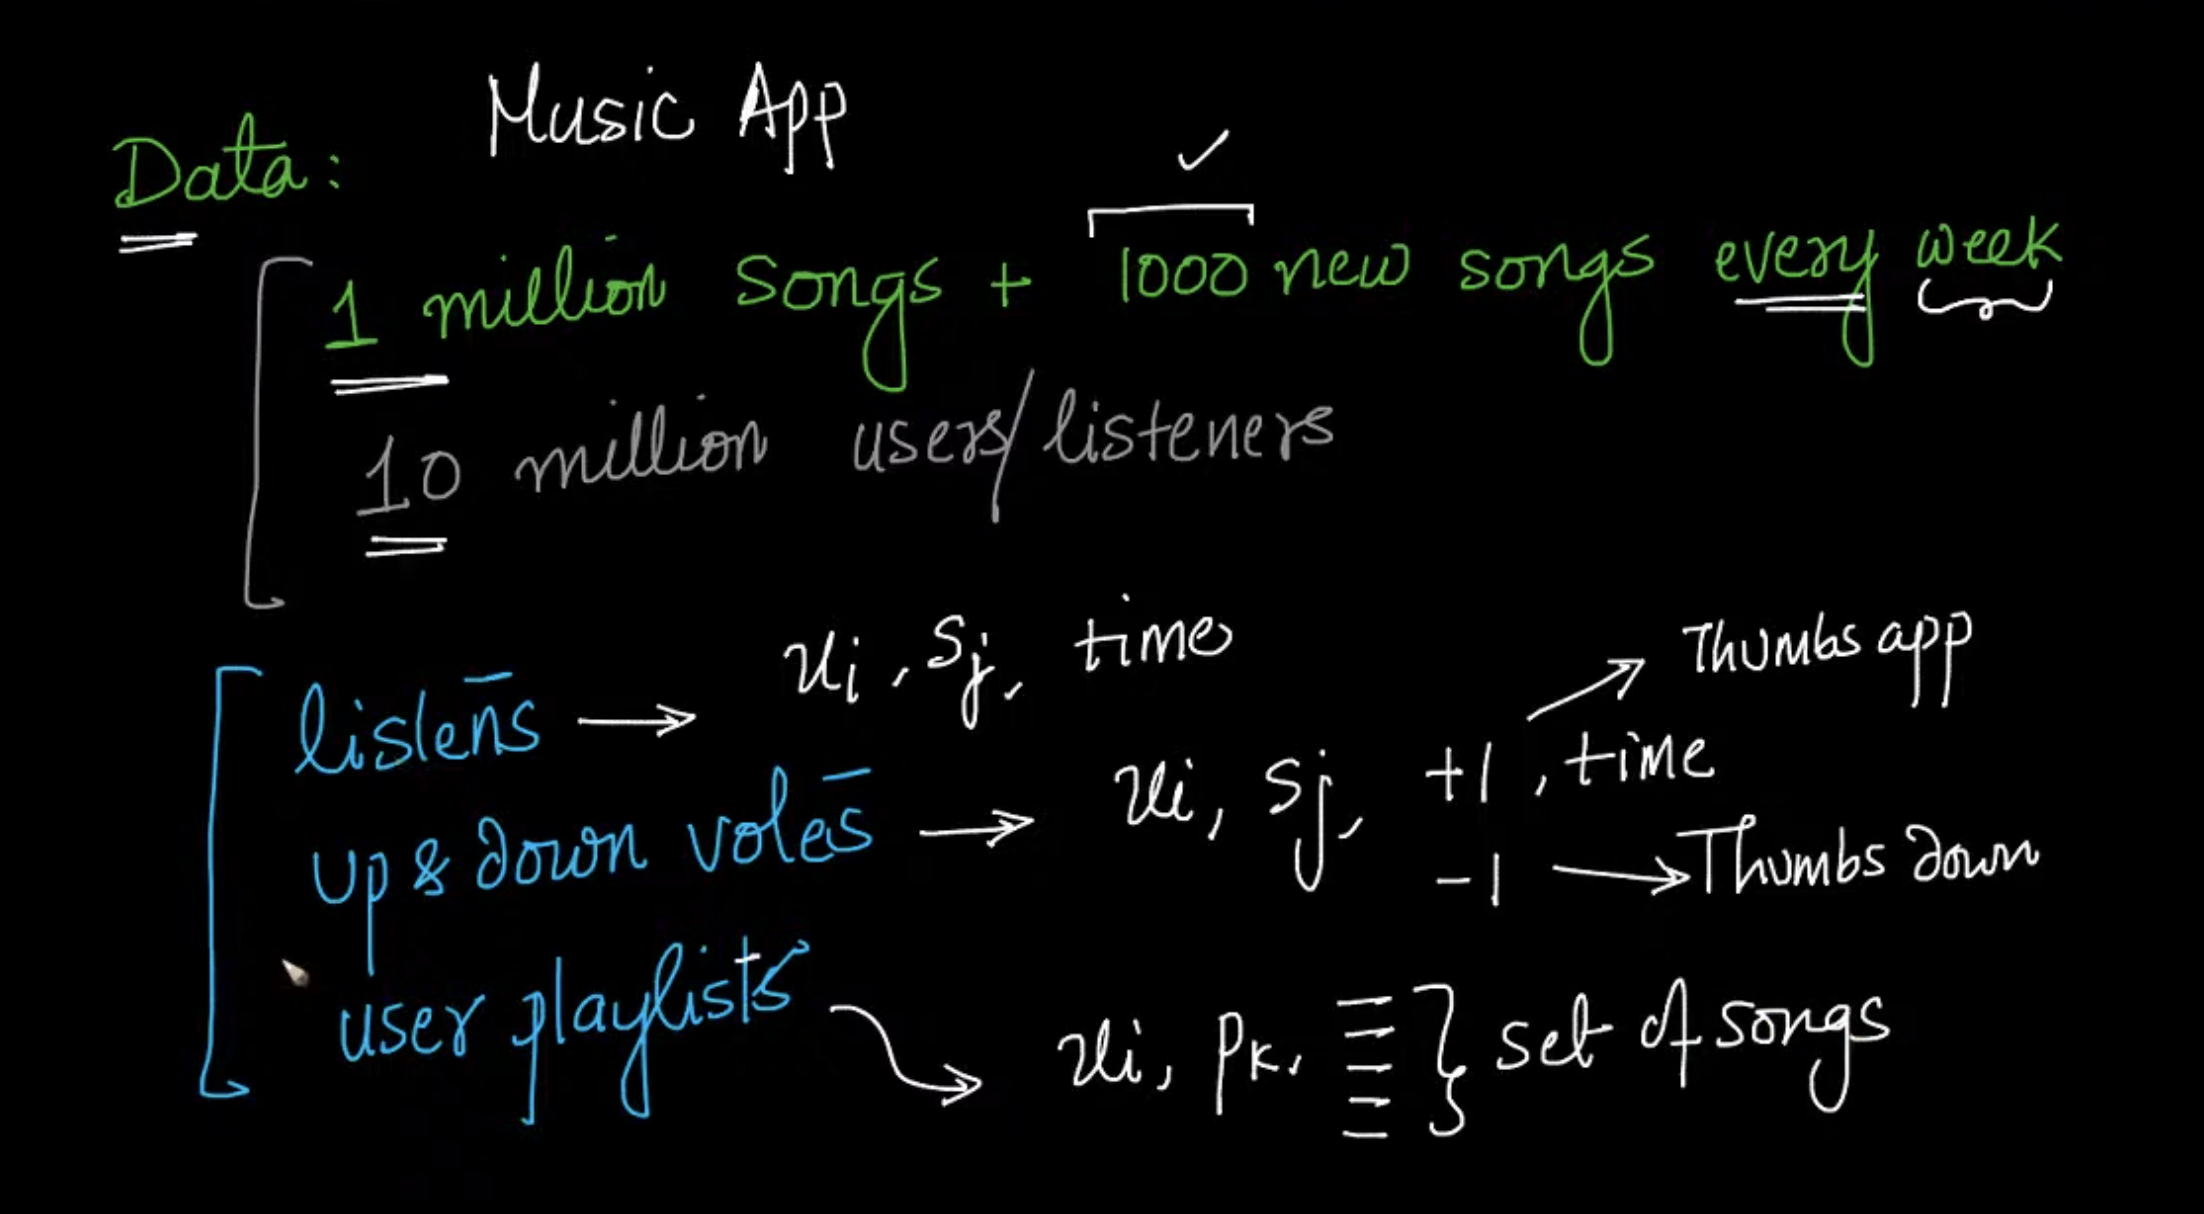 Music App
Data:
1 million songs + 1000 new songs every week
10 million users/listeners
listens → ui, sj, time
Thumbs app
up & down votes → ui, sj, +1, time
-1 → Thumbs down
user playlists → ui, pk, } set of songs